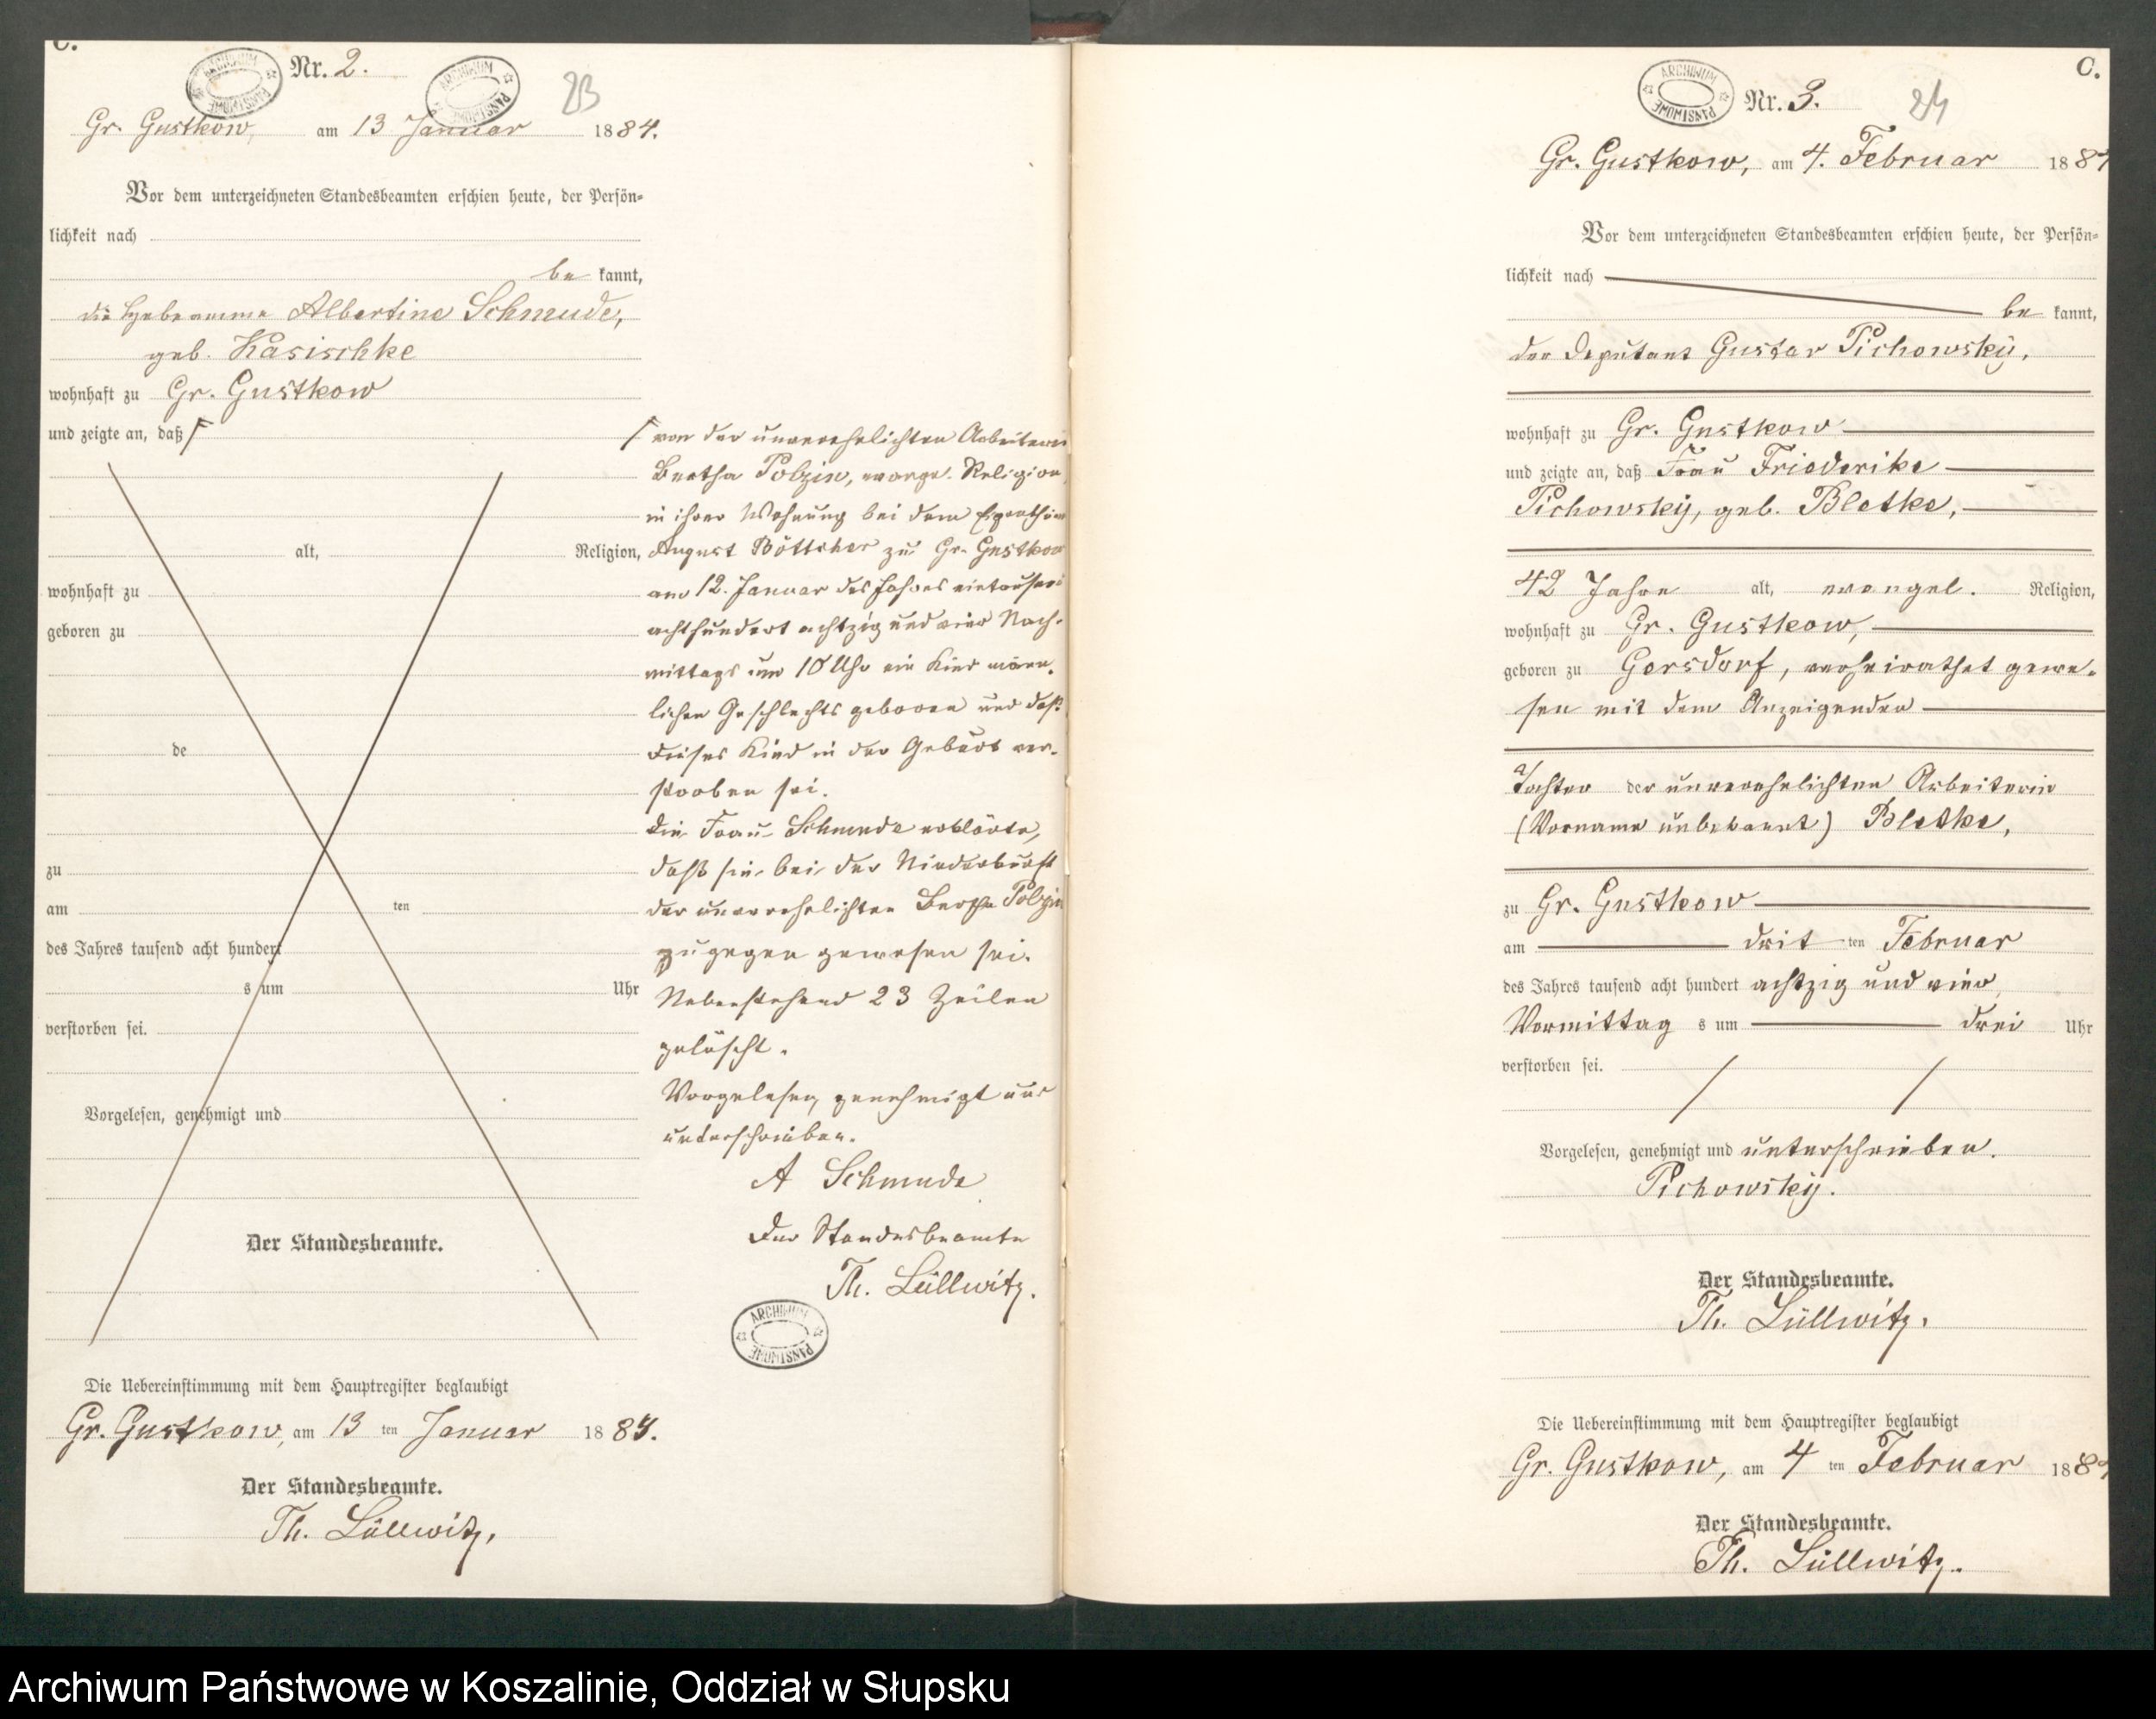 C.
Nr. 2.
23
ARCHIWUM PAŃSTWOWE
ARCHIWUM PAŃSTWOWE
Gr. Gustkow, am 13 Januar 1884.
Vor dem unterzeichneten Standesbeamten erschien heute, der Persön-
lichkeit nach
be kannt,
die Hebeamme Albertine Schmude,
geb. Kasischke
wohnhaft zu Gr. Gustkow
und zeigte an, daß
alt, Religion,
wohnhaft zu
geboren zu
de
zu
am ten
des Jahres tausend acht hundert
s um Uhr
verstorben sei.
Vorgelesen, genehmigt und
Der Standesbeamte.
von der unverehelichten Arbeiterin
Bertha Polzin, evange. Religion,
in ihrer Wohnung bei dem Eigenthüm
August Böttcher zu Gr. Gustkow
am 12. Januar des Jahres eintausend
achthundert achtzig und vier Nach-
mittags um 10 Uhr ein Kind männ-
lichen Geschlechts geboren und daß
dieses Kind in der Geburt ver-
storben sei.
Die Frau Schmude erklärte,
daß sie bei der Niederkunft
der unverehelichten Bertha Polzin
zugegen gewesen sei.
Nebenstehend 23 Zeilen
gelöscht.
Vorgelesen, genehmigt und
unterschrieben.
A Schmude
Der Standesbeamte
Th. Lüllwitz.
ARCHIWUM PAŃSTWOWE
Die Uebereinstimmung mit dem Hauptregister beglaubigt
Gr. Gustkow, am 13 ten Januar 1884.
Der Standesbeamte.
Th. Lüllwitz.
C.
ARCHIWUM PAŃSTWOWE
Nr. 3.
24
Gr. Gustkow, am 4. Februar 1884
Vor dem unterzeichneten Standesbeamten erschien heute, der Persön-
lichkeit nach
be kannt,
der Deputant Gustav Pichowsky,
wohnhaft zu Gr. Gustkow
und zeigte an, daß Frau Friederike
Pichowsky, geb. Bletke,
42 Jahre alt, evangel. Religion,
wohnhaft zu Gr. Gustkow,
geboren zu Gersdorf, verheirathet gewe-
sen mit dem Anzeigenden
Tochter der unverehelichten Arbeiterin
(Vorname unbekannt) Bletke,
zu Gr. Gustkow
am drit ten Februar
des Jahres tausend acht hundert achtzig und vier,
Vormittag s um drei Uhr
verstorben sei.
Vorgelesen, genehmigt und unterschrieben.
Pichowsky.
Der Standesbeamte.
Th. Lüllwitz.
Die Uebereinstimmung mit dem Hauptregister beglaubigt
Gr. Gustkow, am 4 ten Februar 1884
Der Standesbeamte.
Th. Lüllwitz.
Archiwum Państwowe w Koszalinie, Oddział w Słupsku